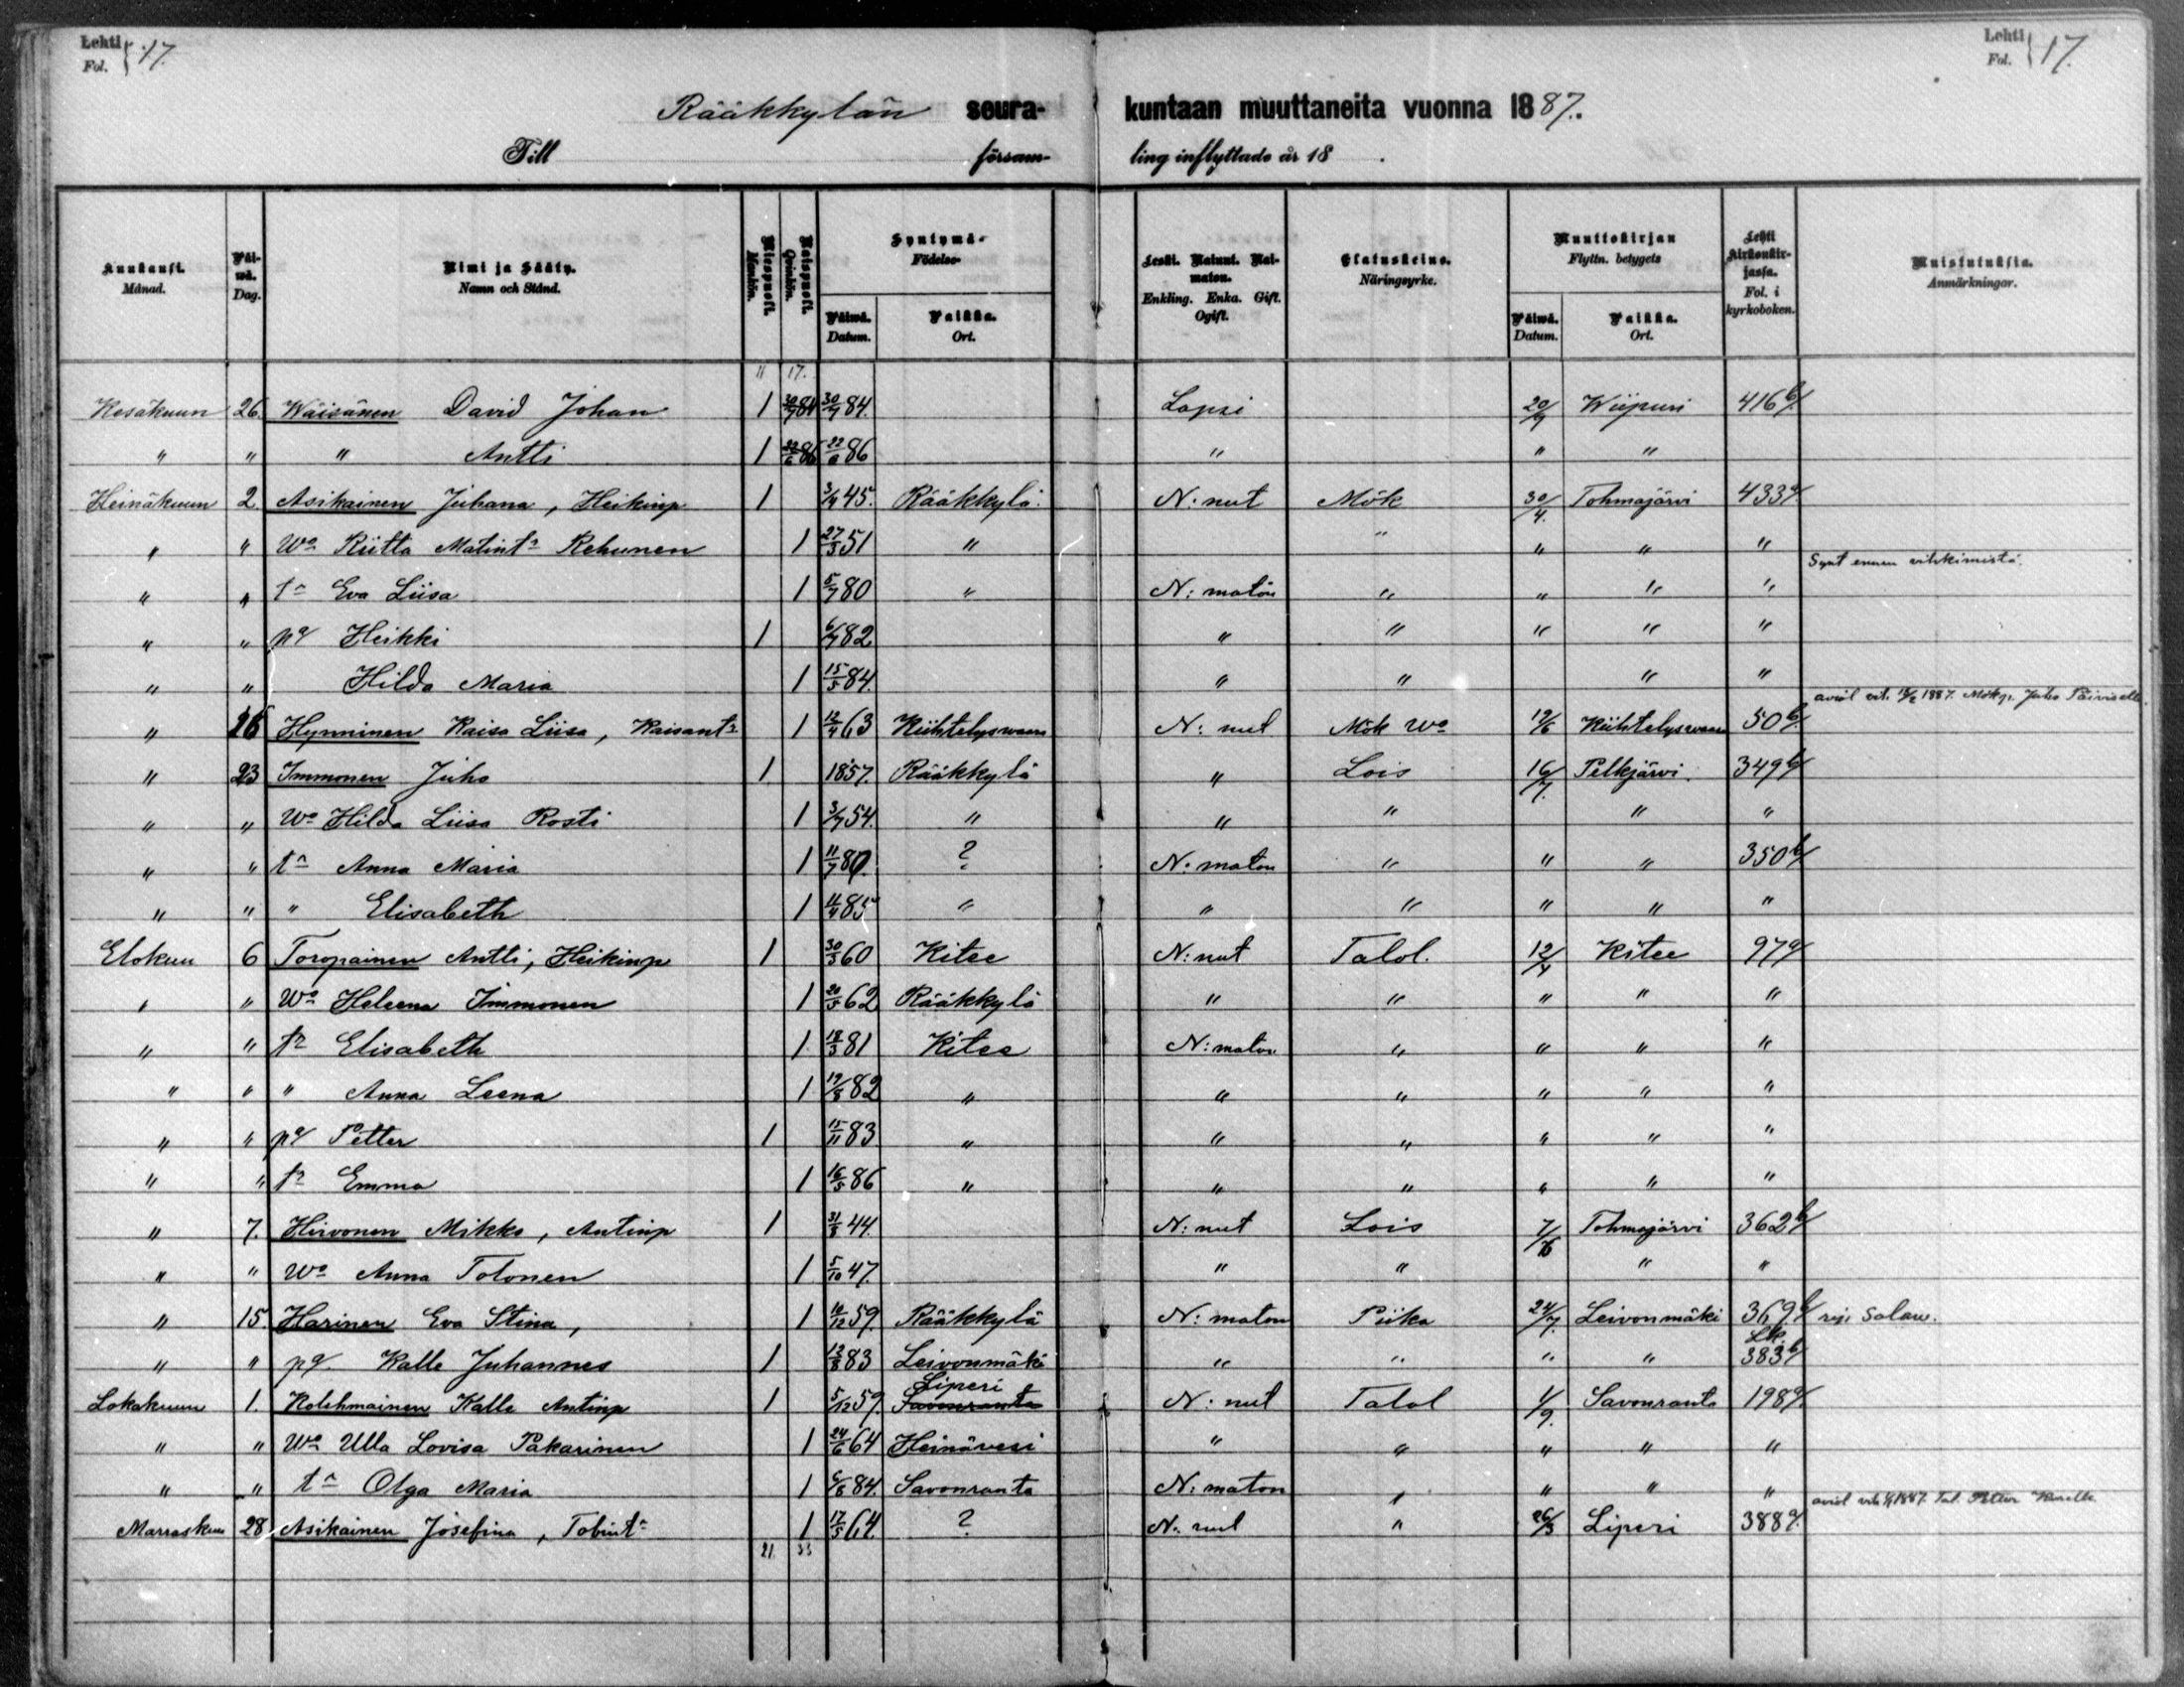 Lehti Fol. } 17. Lehti Fol. } 17.
Rääkkylän seura- kuntaan muuttaneita vuonna 1887.
Till försam- ling inflyttade år 18 .
Kuukausi. Månad. Päi-wä. Dag. Nimi ja Sääty. Namn och Stånd. Miespuoli. Mankön. Naispuoli. Qvinkön. Syntymä- Födelse- Päiwä. Datum. Paikka. Ort. Leski. Nainut. Nai-maton. Enkling. Enka. Gift. Ogift. Elatuskeino. Näringsyrke. Muuttokirjan Flyttn. betygets Päiwä. Datum. Paikka. Ort. Lehti Kirkonkir-jassa. Fol. i kyrkoboken. Muistutuksia. Anmärkningar.
11 17.
Kesäkuun 26. Wäisänen David Johan 1 30/7 84 30/7 84. Lapsi 20/9 Wiipuri 416 b/.
" " " Antti 1 22/6 86 22/6 86 " " "
Heinäkuun 2 Asikainen Juhana, Heikinp 1 3/4 45. Rääkkylä. N:nut Mök 30/4. Tohmajärvi 433 a/
" " Wo Riitta Matint:r Rehunen 1 27/3 51 " " " " "
Synt ennen vihkimistä.
" " t:r Eva Liisa 1 5/7 80 " N:matön " " " "
" " pa Heikki 1 6/7 82 " " " " "
" " Hilda Maria 1 15/5 84. " " " "
aviol vih. 18/2 1887. Mökp. Juho Päiviselle.
" 16 Hynninen Kaisa Liisa, Kaisant:r 1 12/4 63 Kiihtelyswaara N:nut Mök Wo 19/6 Kiihtelyswaara 50 b/.
" 23 Immonen Juho 1 1857. Rääkkylä " Lois 16/7. Pelkjärvi. 349 b/
" " Wo Hilda Liisa Rosti 1 3/7 54. " " " " "
" " t:r Anna Maria 1 11/7 80. ? N:maton " " " 350 b/
" " " Elisabeth 1 11/4 85 " " " " " "
Elokuu 6 Toropainen Antti, Heikinp 1 30/3 60 Kitee N:nut Talol. 12/4 Kitee 97 a/
" " Wo Heleena Immonen 1 20/5 62 Rääkkylä " " " " "
" " t:r Elisabeth 1 18/3 81 Kitee N:maton " " " "
" " " Anna Leena 1 19/8 82 " " " " " "
" " pa Petter 1 15/11 83 " " " " " "
" " t:r Emma 1 16/5 86 " " " " " "
" 7. Hirvonen Mikko, Antinp 1 31/8 44. N:nut Lois 7/6 Tohmajärvi 362 b/
" " Wo Anna Tolonen 1 5/10 47. " " " "
" 15. Harinen Eva Stina, 1 10/12 59. Rääkkylä N:maton Piika 24/7. Leivonmäki 369 b/ rip. Salaw.
Lk.
" " pa Kalle Juhannes 1 13/8 83 Leivonmäki " " " " 383 b/
Liperi
Lokakuun 1. Kolehmainen Kalle Antinp 1 5/12 59. Savonranta N:nut Talol 1/9. Savonranta 198 a/.
" " Wo Ulla Lovisa Pakarinen 1 24/6 64 Heinävesi " " " " "
" " t:r Olga Maria 1 6/8 84. Savonranta N:maton " " " "
aviol vih 1887. Tal. Petter
Marraskuu 28 Asikainen Josefina, Tobint:r 1 17/5 64. ? N:nut " 26/3 Liperi 388 a/.
21. 33